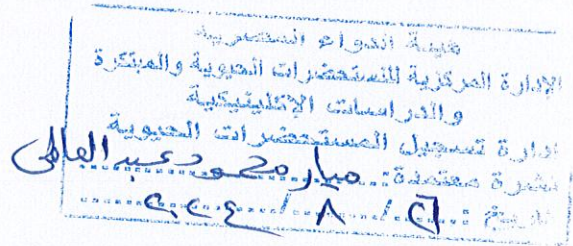 هيئة الدواء المصرية
الإدارة المركزية للمستحضرات الحيوية والمبتكرة
والدراسات الإكلينيكية
إدارة تسجيل المستحضرات الحيوية
نشرة معتمدة: ميار محمود عبد العاطى
تاريخ: ٦ / ٨ / ٢٠٢٤